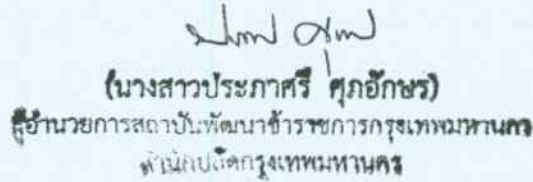 (นางสาวประภาศรี ศุภอักษร)
ผู้อำนวยการสถาบันพัฒนาข้าราชการกรุงเทพมหานคร
สำนักปลัดกรุงเทพมหานคร